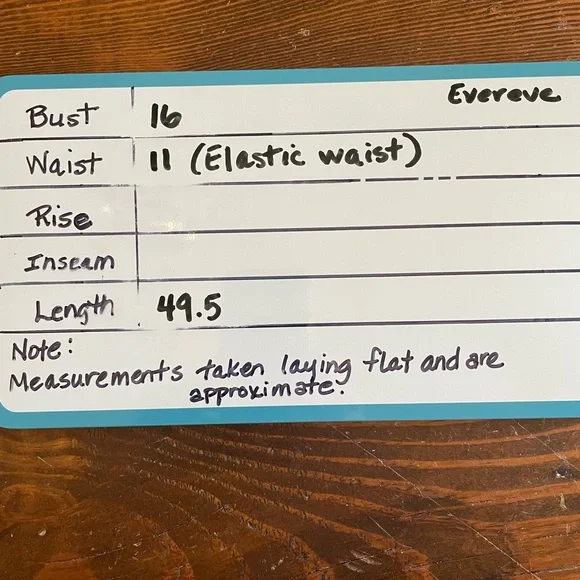 Evereve
Bust 16
Waist 11 (Elastic waist)
Rise
Inseam
Length 49.5
Note:
Measurements taken laying flat and are
approximate.